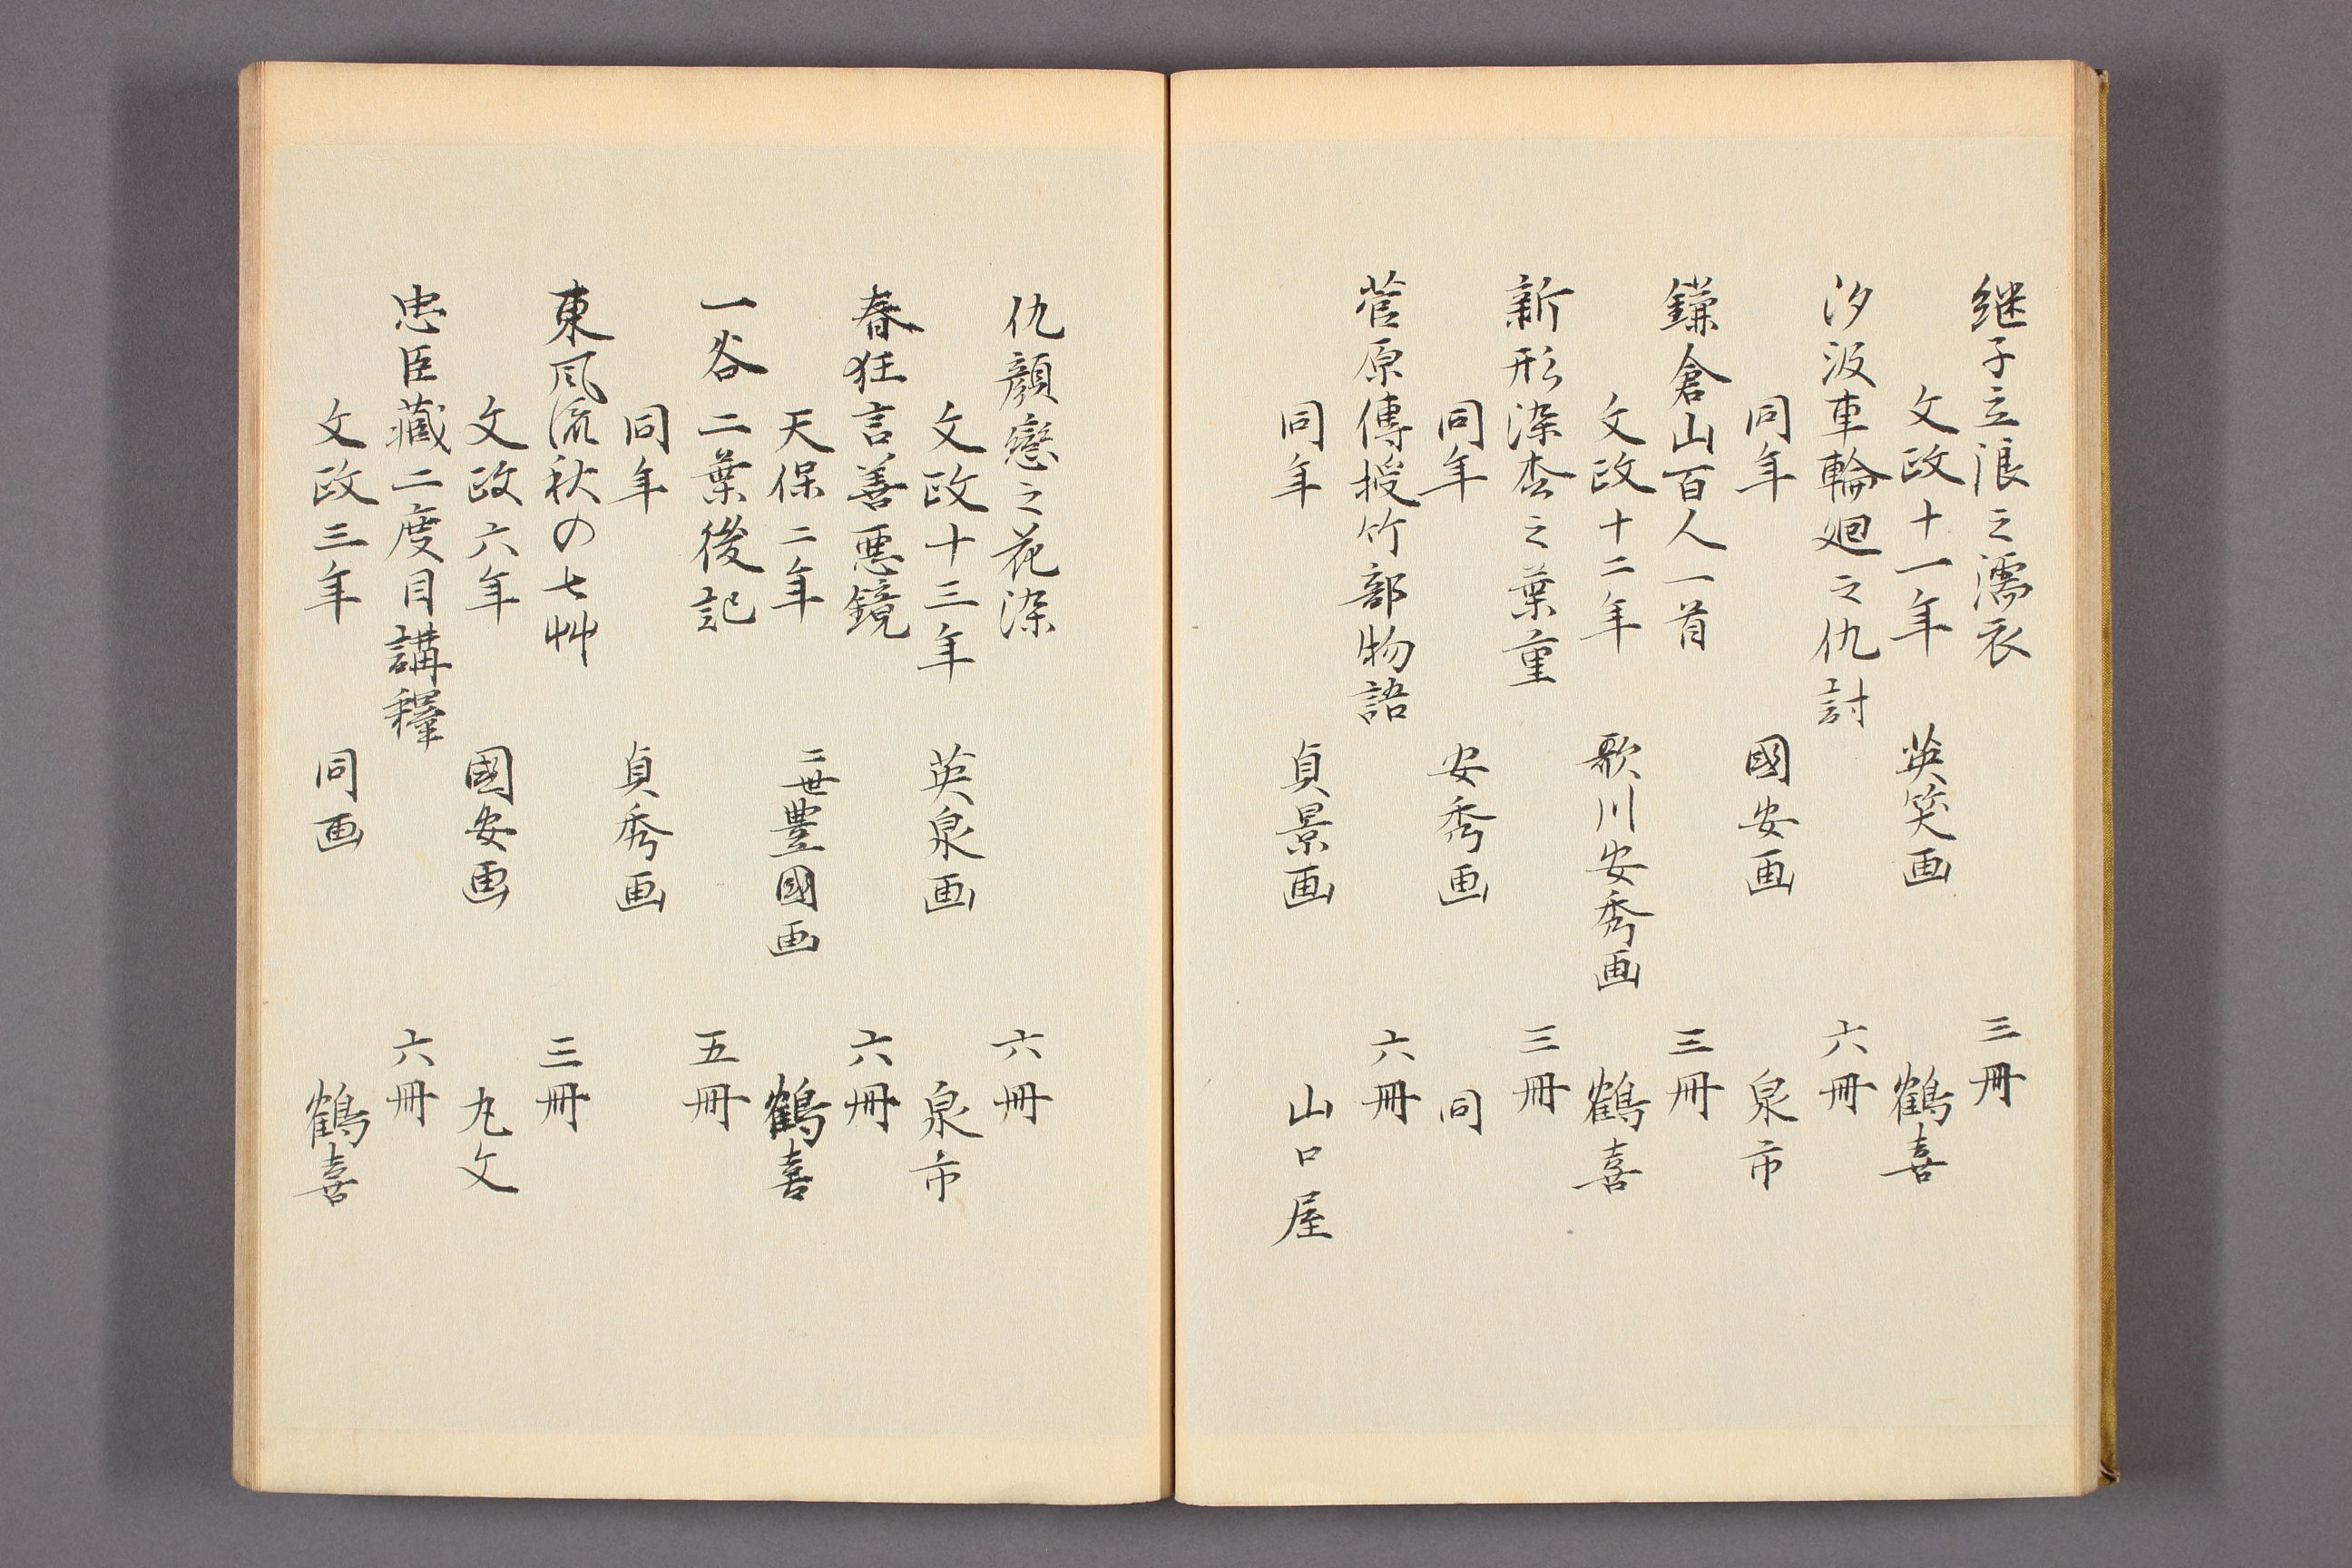 继子立浪之濡衣 三冊
文政十一年 英笑画 鶴喜
汐汲車輪廻之仇討 六冊
同年 國安画 泉市
鎌倉山百人一首 三冊
文政十二年 歌川安秀画 鶴喜
新形染松之葉重 三冊
同年 安秀画 同
菅原傳授竹部物語 六冊
同年 貞景画 山口屋
仇顔戀之花染 六冊
文政十三年 英泉画 泉市
春狂言善悪鏡 六冊
天保二年 二世豊國画 鶴喜
一谷二葉後記 五冊
同年 貞秀画
東風流秋の七艸 三冊
文政六年 國安画 丸文
忠臣藏二度目講釋 六冊
文政三年 同画 鶴喜